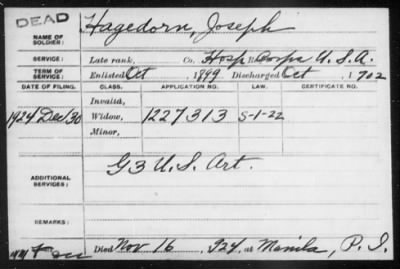 DEAD
NAME OF SOLDIER: Hagedorn, Joseph
SERVICE: Late rank, Co. Hosp Corps U.S.A.
TERM OF SERVICE: Enlisted Oct , 1899 Discharged Oct , 1902
DATE OF FILING. CLASS. APPLICATION NO. LAW. CERTIFICATE NO.
Invalid,
1924 Dec/30 Widow, 1227313 S-1-22
Minor,
ADDITIONAL SERVICES: G3 U.S. Art.
REMARKS:
Died Nov 16 , 924, at Manila, P.I.